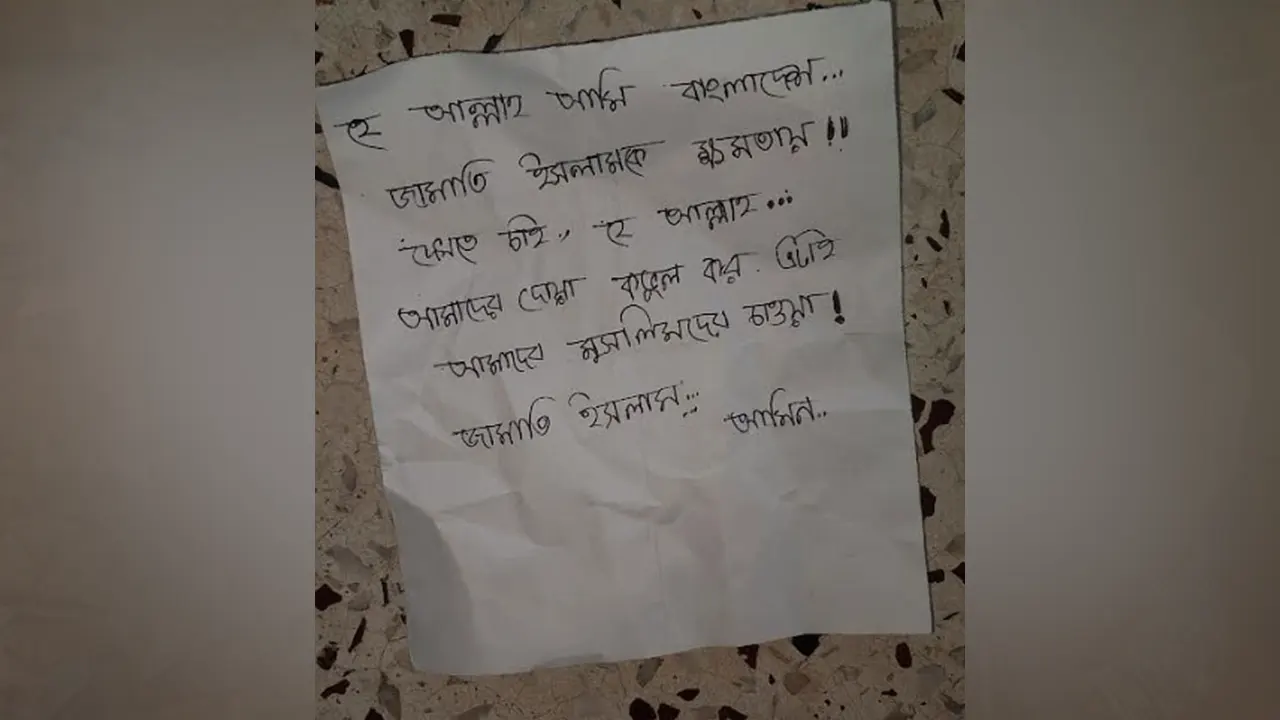 হে আল্লাহ আমি বাংলাদেশে...
জামাতি ইসলামকে ক্ষমতায় !!
দেখতে চাই,, হে আল্লাহ...
আমাদের দোয়া কবুল কর. এটাই
আমাদের মুসলিমদের চাওয়া!
জামাতি ইসলাম... আমিন..